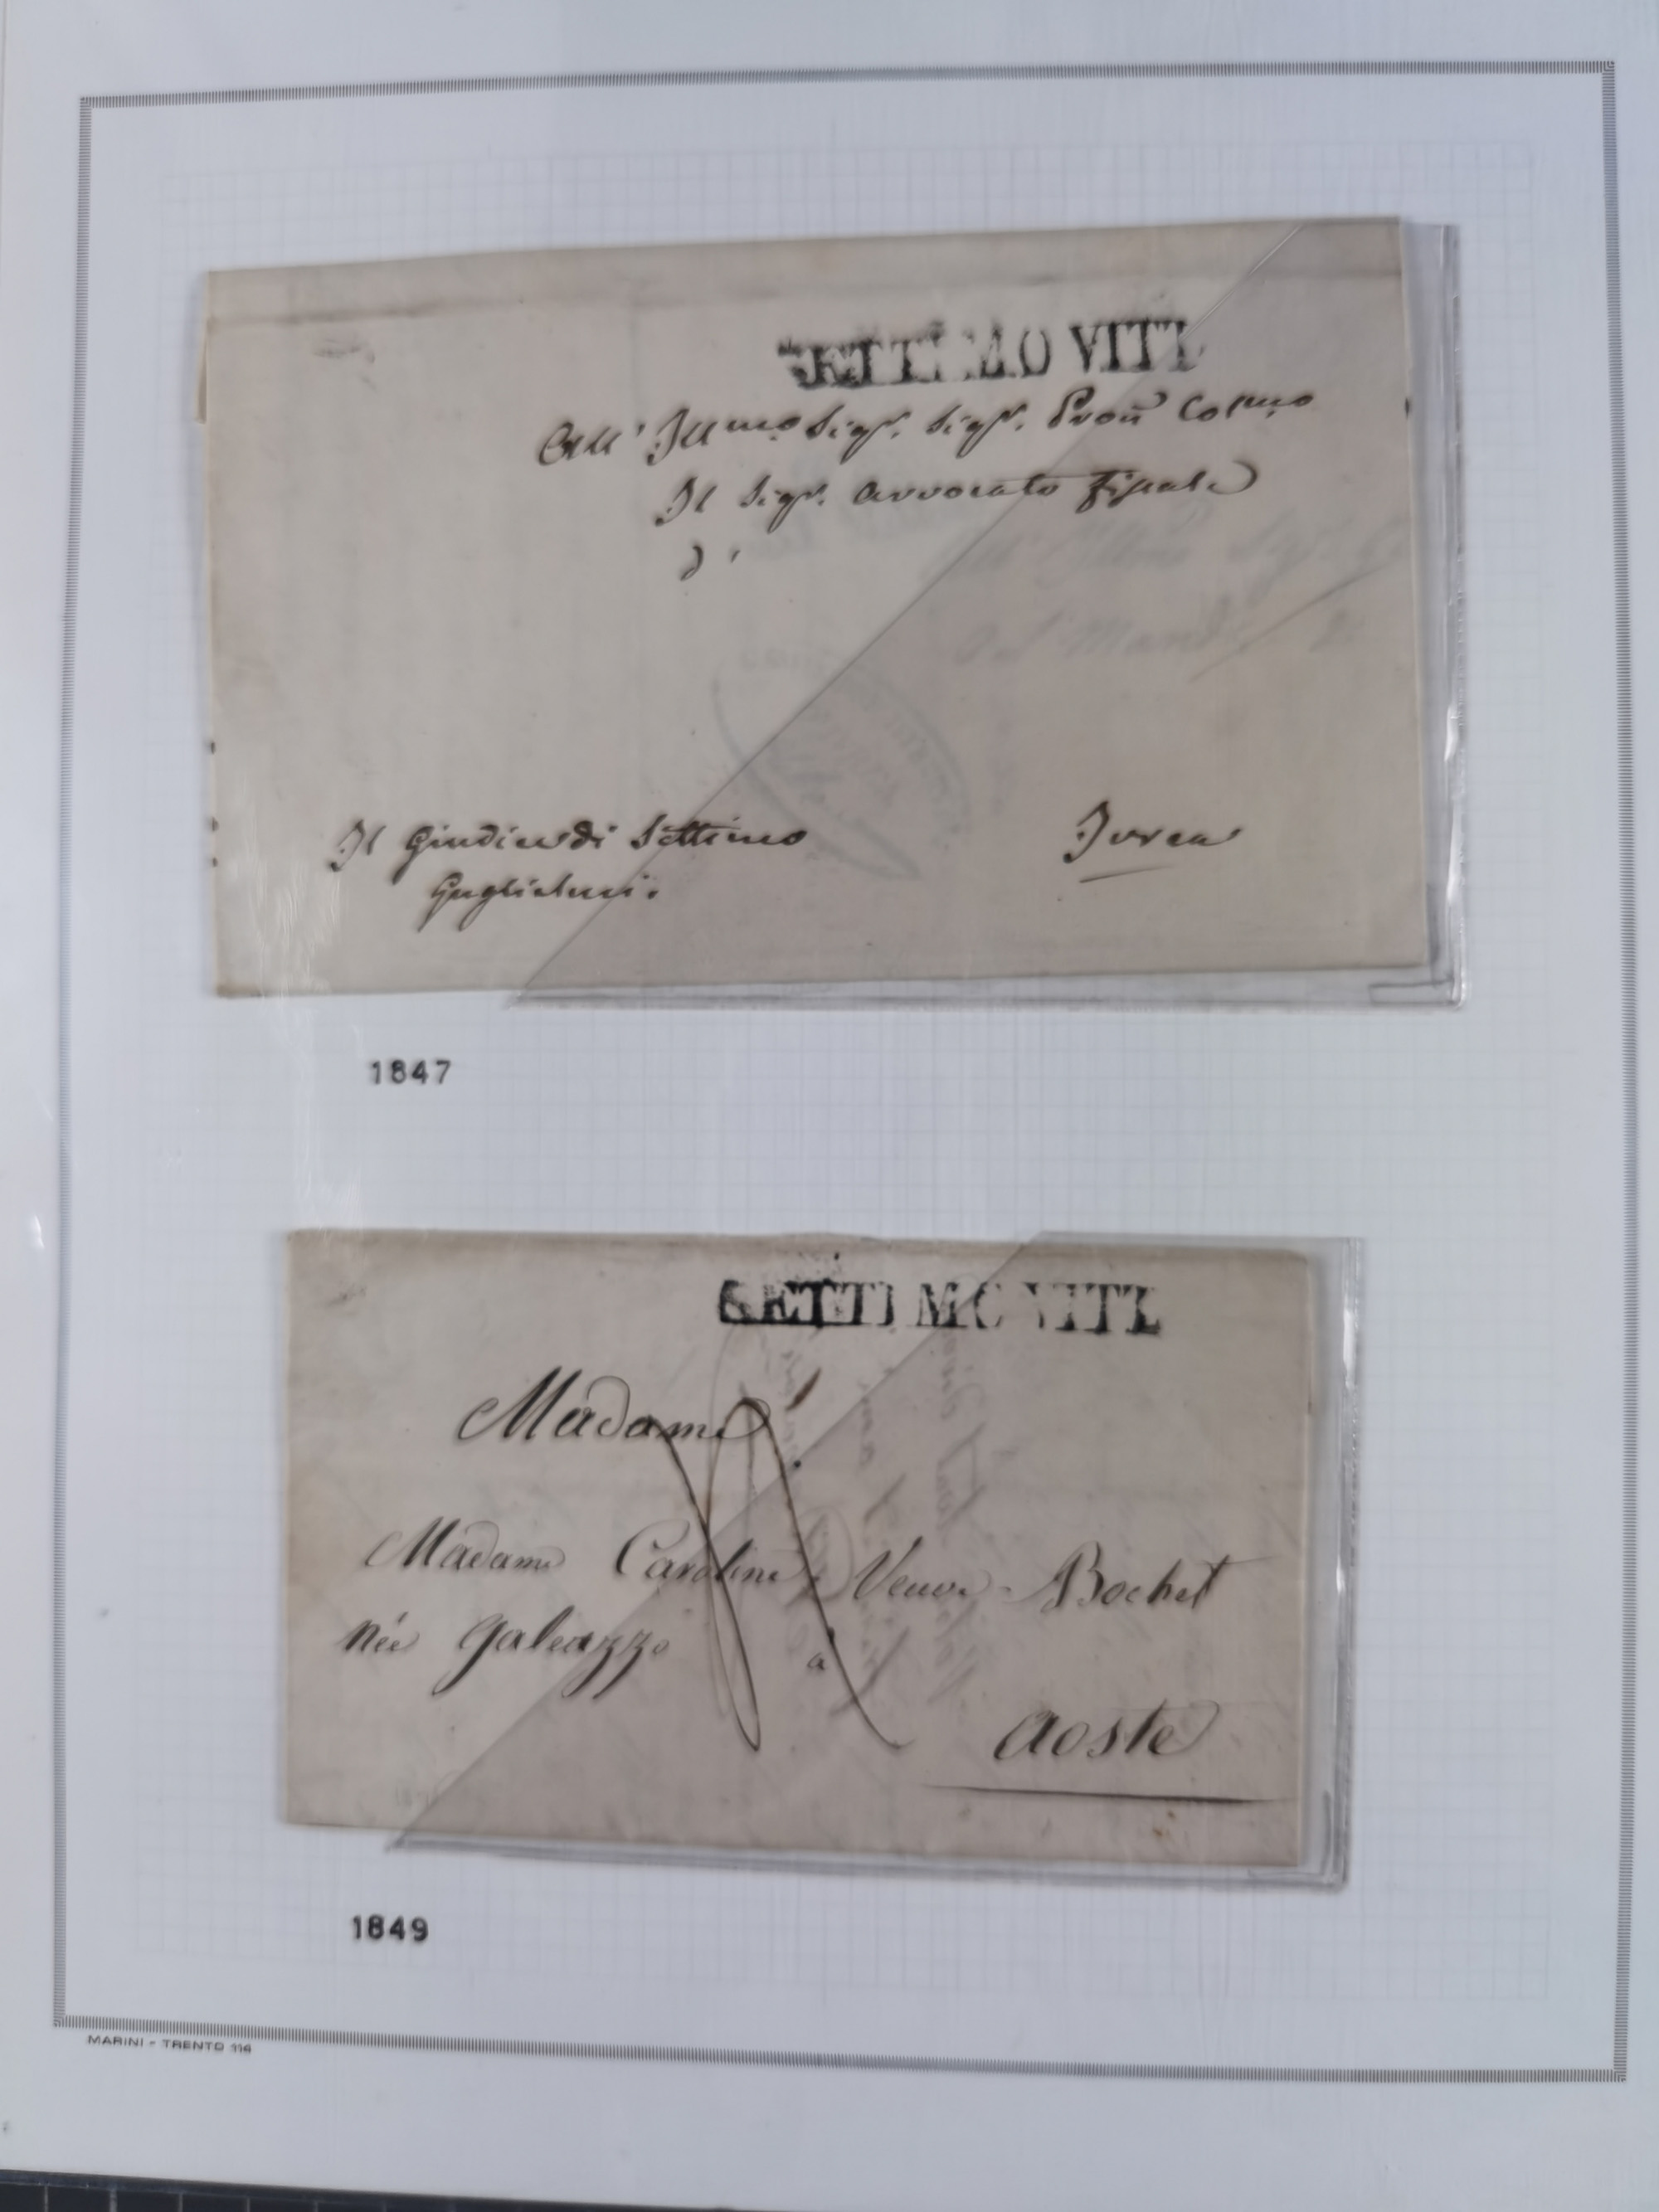 SETTIMO VITT
All' Illmo Sigr. Sigr. Pron Colmo
Il Sigr. Avvocato Fiscale
d'
Il Giudice di Settimo
Guglielmi.
Ivrea
1847
SETTIMO VITT
Madame
Madame Caroline Veuve Bochet
née Galeazzo
a
Aoste
1849
MARINI - TRENTO 116